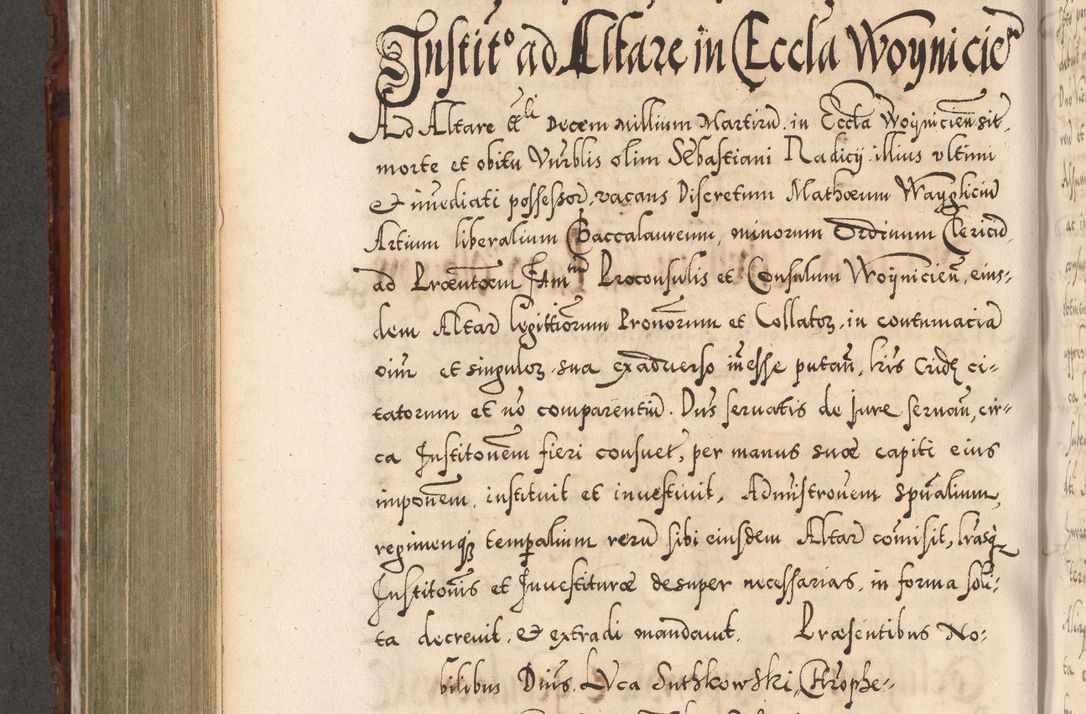 Instit° ad Altare in Eccla Woynicien
Ad Altare Decem Millium Martirũ in Eccla Woyniciẽn sit,
morte et obitu Vnrblis olim Sebastiani Radicÿ illius vltimi
et imẽdiati possessor, vacans Discretum Mathæum Wayglicium
Artium liberalium Baccalaureum, minorum Ordinum Clericũ,
ad Præntãem Proconsulis et Consulum Woyniciẽn, eius-
dem Altar legittiõrum Pronõrum et Collator, in contumacia
oim et singulor sua exaduerso inẽsse putan, lris Crid ci-
tatorum et nõ comparentiũ. Dns seruatis de iure seruan, cir-
ca Institonẽm fieri consuet, per manus suæ capiti eius
imponem, instituit et inuestiuit, Admistronem spũalium,
regimenq temporalium rerũ sibi eiusdem Altar comisit, lrasq
Institonis et Inuestituræ desuper necessarias, in forma soli-
ta decreuit, et extradi mandauit. Præsentibus No-
bilibus Dnis, Luca Suthkowski,